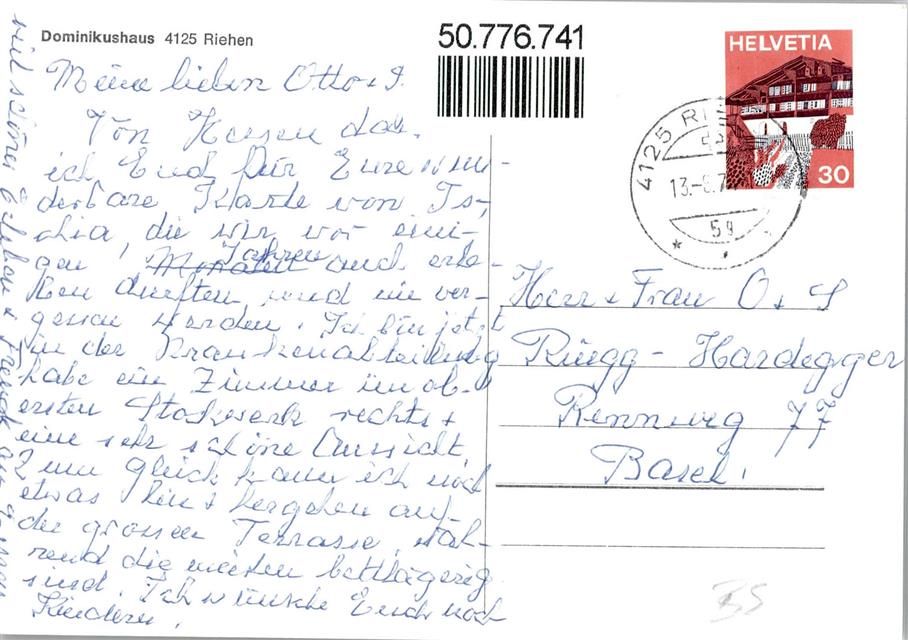 Dominikushaus 4125 Riehen
50.776.741
HELVETIA
30
4125 RIE
13.-8.7
59
Meine lieben Otto + S.
Von Herzen dan-
ich Euch für Eure wun-
derbare Karte von Is-
chia die wir vor eini-
gen Jahren auch erle-
ben durften und nie ver-
gessen werden. Ich bin jetzt
in der Krankenabteilung
habe ein Zimmer im ob-
ersten Stokwerk rechts +
eine sehr schöne Aussicht.
Zum Glück kann ich noch
etwas hin + hergehen auf
der grossen Terrasse, wäh-
rend die meisten bettlägerig
sind. Ich wünsche Euch noch
viel schönes Erleben + Freude an
Kindern.
Herr + Frau O + S
Rüegg-Hardegger
Rennweg 77
Basel.
BS